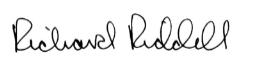 Richard Riddell